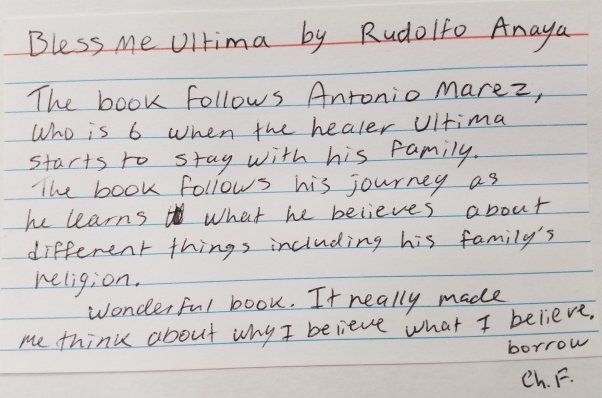 Bless Me Ultima by Rudolfo Anaya
The book follows Antonio Marez,
who is 6 when the healer Ultima
starts to stay with his family.
The book follows his journey as
he learns what he believes about
different things including his family's
religion.
Wonderful book. It really made
me think about why I believe what I believe.
borrow
Ch. F.